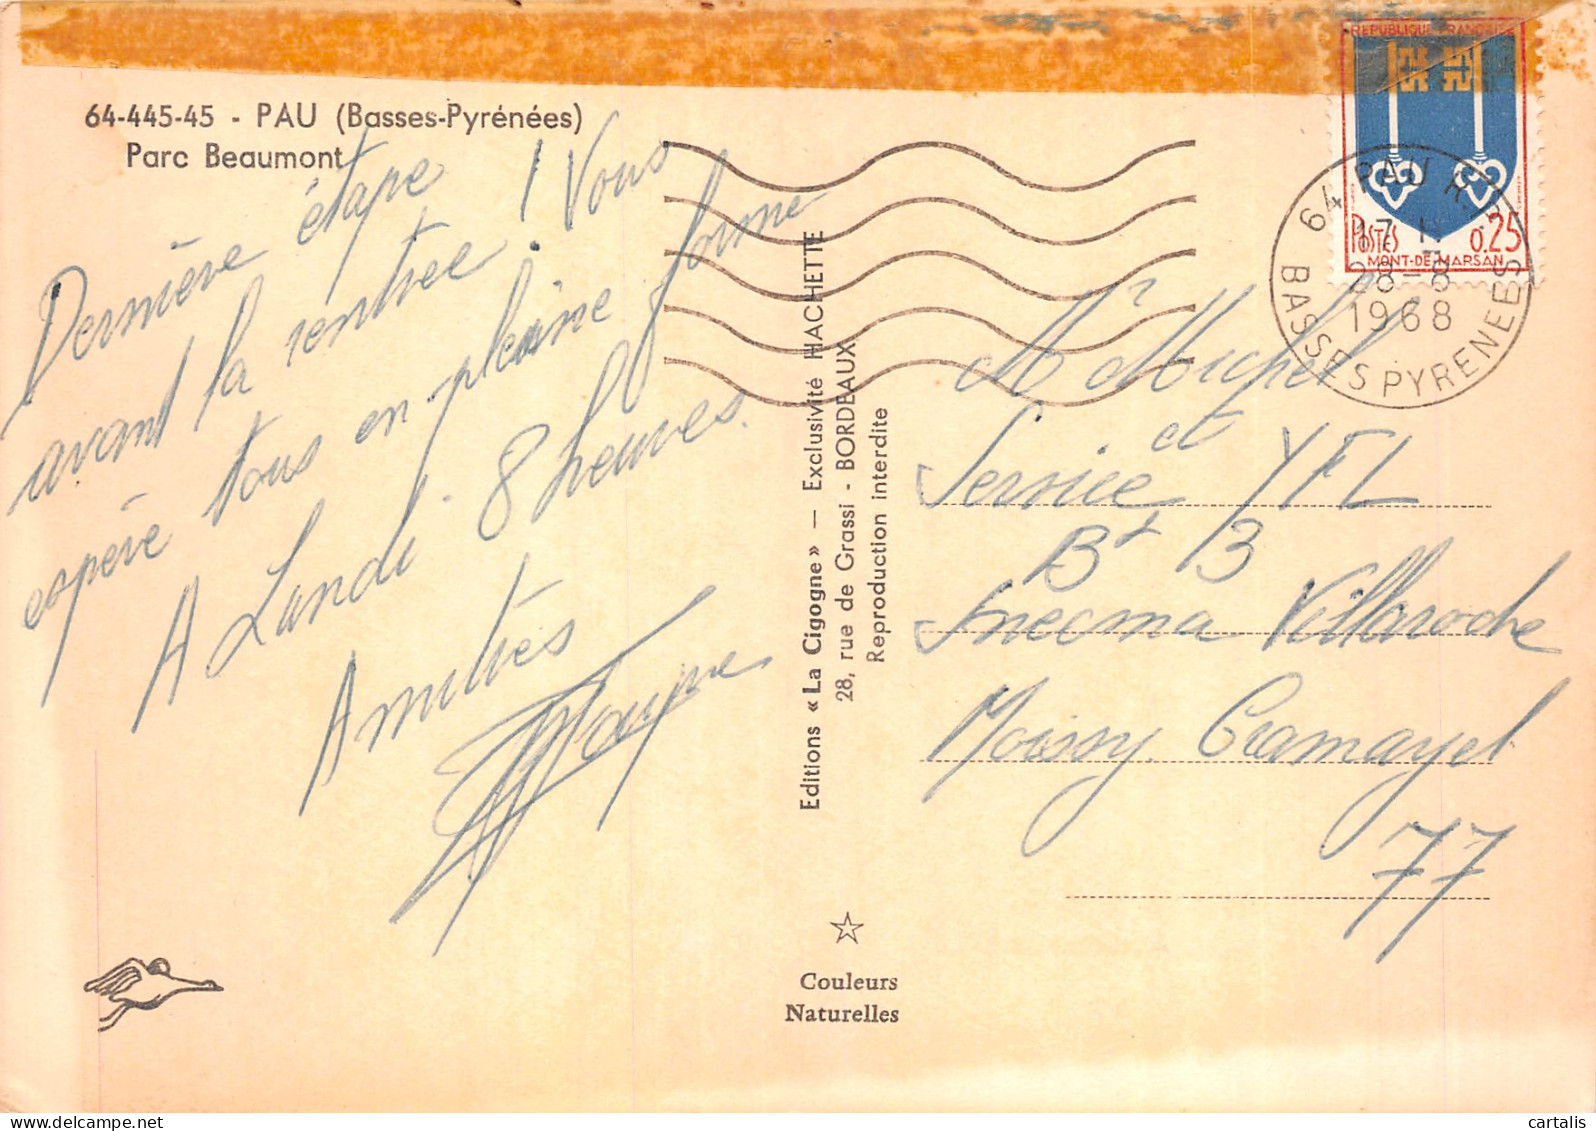 64-445-45 - PAU (Basses-Pyrénées)
Parc Beaumont
Dernière étape
avant la rentrée ! Vous
espère tous en pleine forme
A Lundi 8 heures.
Amitiés
Editions « La Cigogne » — Exclusivité HACHETTE
28, rue de Grassi - BORDEAUX
Reproduction interdite
Couleurs
Naturelles
REPUBLIQUE FRANÇAISE
POSTES 0,25
MONT-DE-MARSAN
64 PAU R.P.
17 H
28-8
1968
BASSES PYRENEES
Mr Michel
et
Service YFL
Bt 3
Snecma Villaroche
Moissy Cramayel
77
cartalis
www.delcampe.net